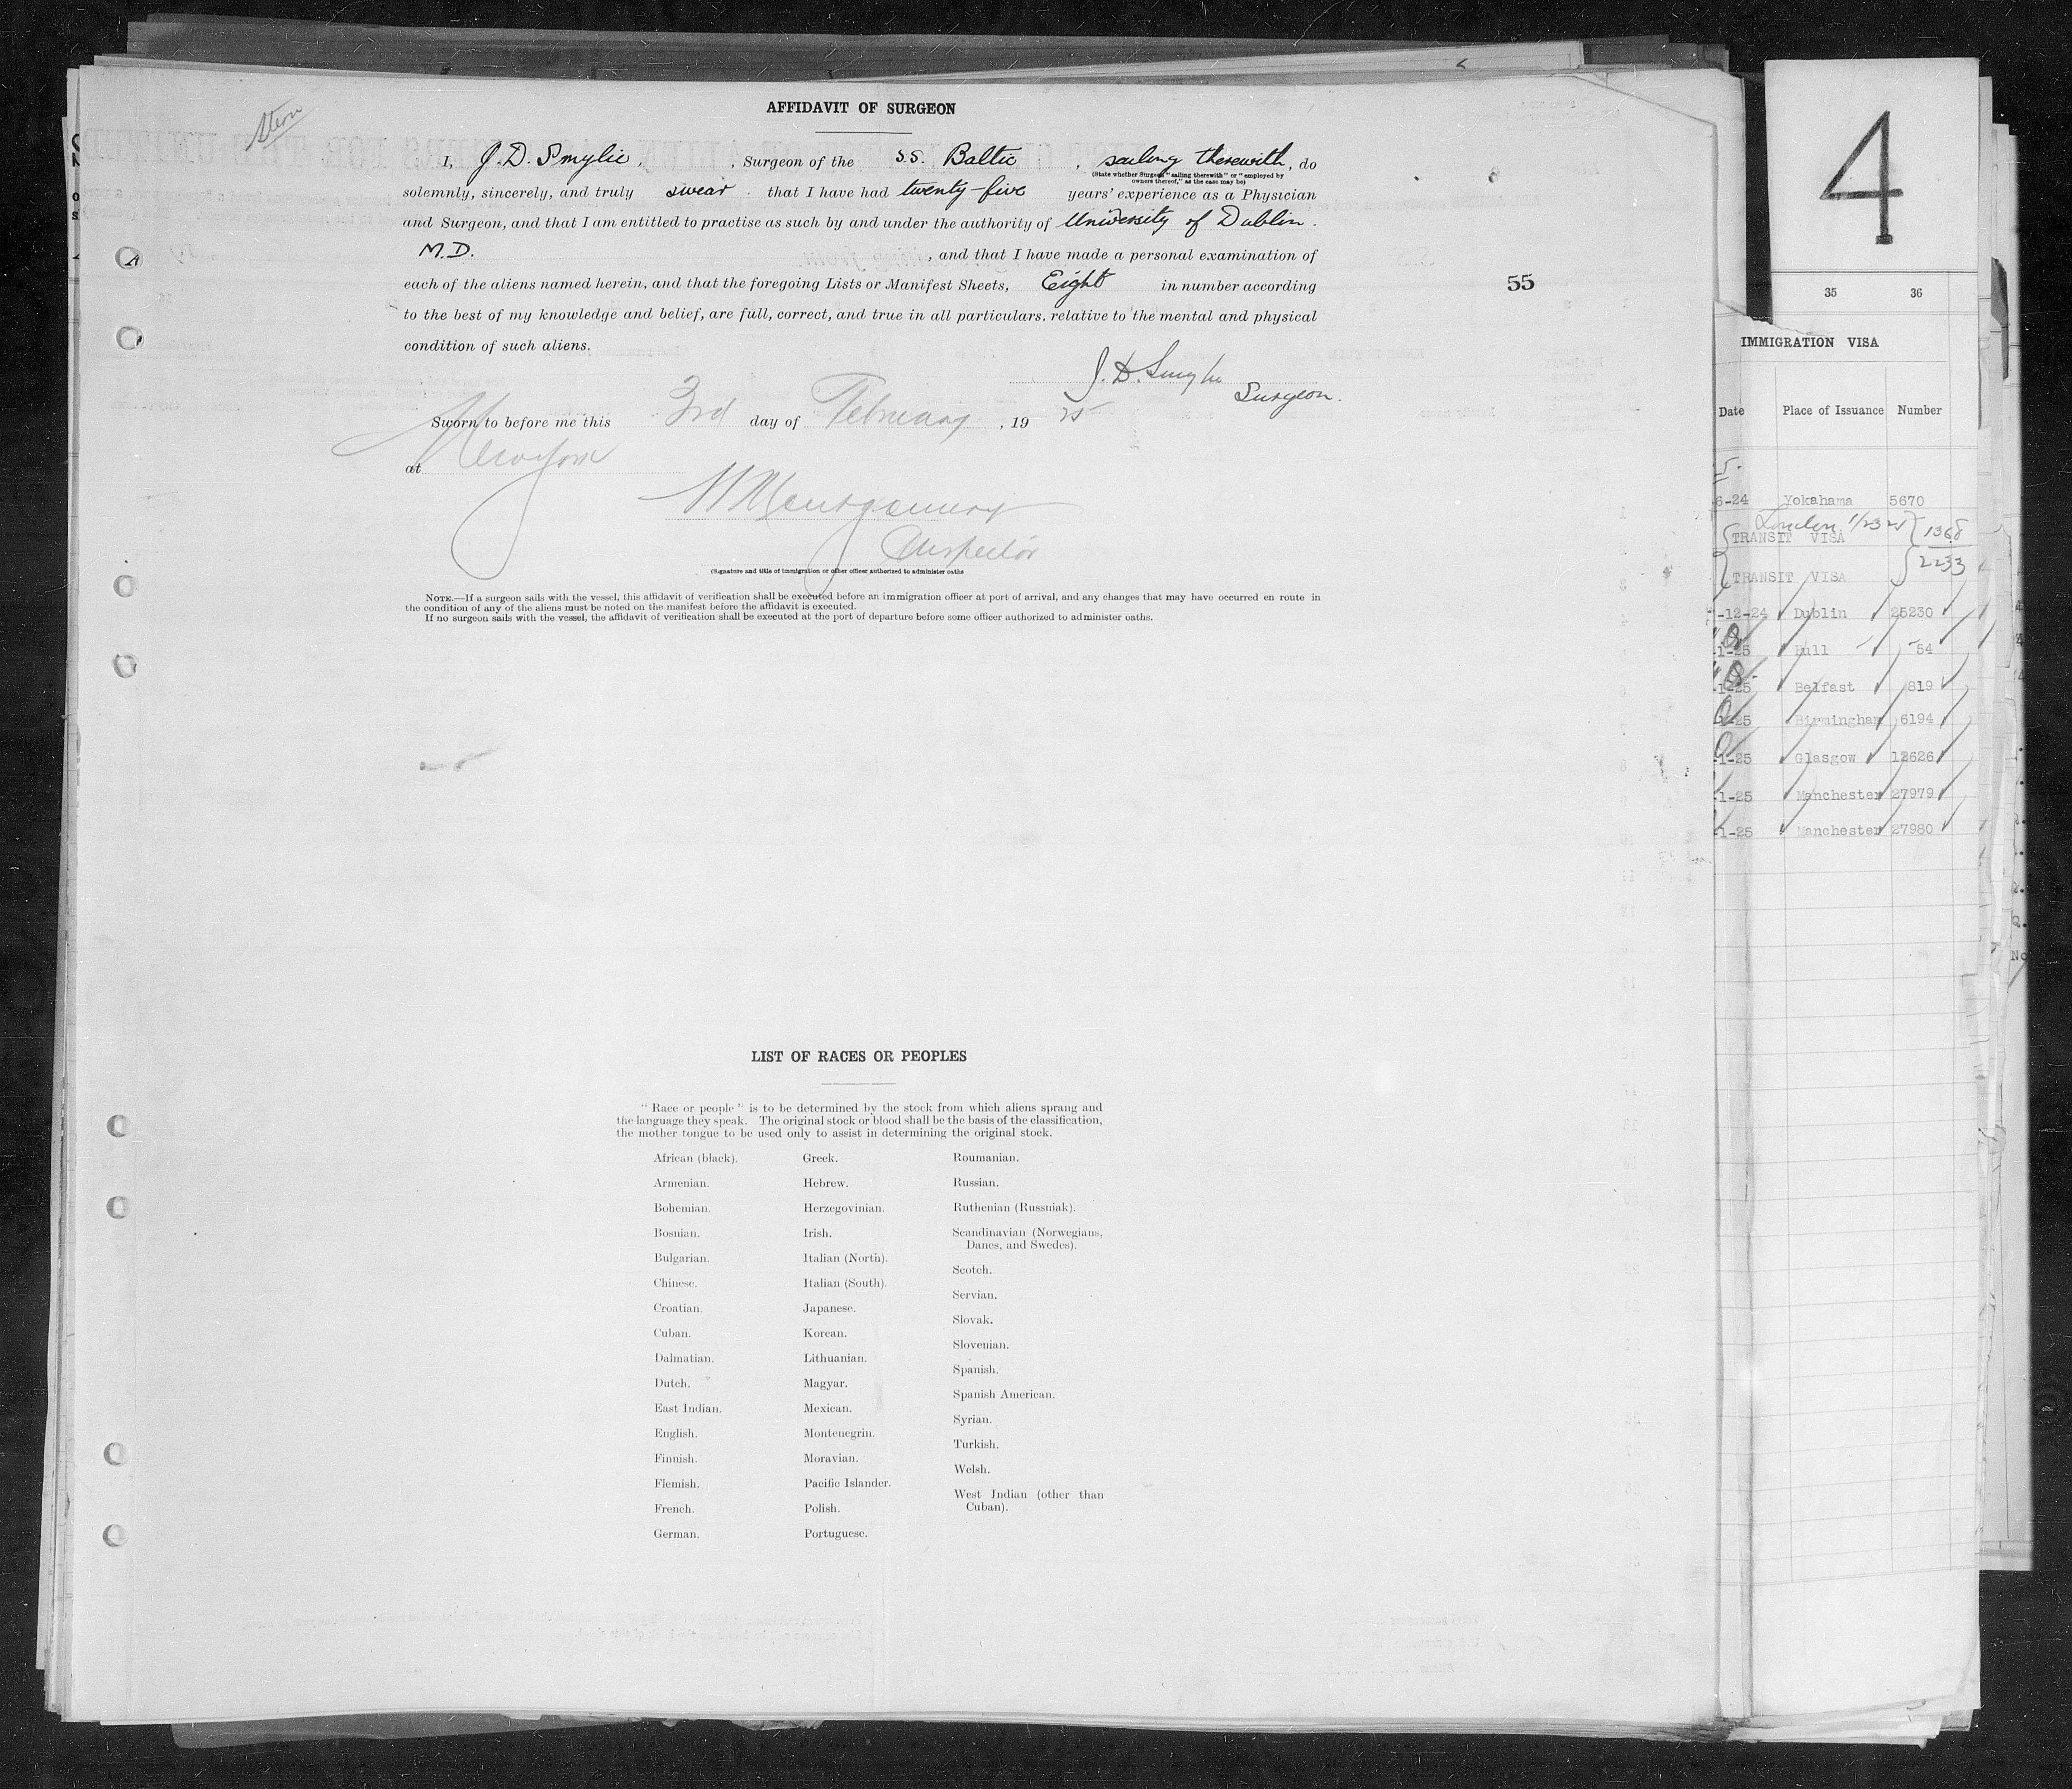 Stern
AFFIDAVIT OF SURGEON
I, J. D. Smylie, , Surgeon of the S.S. Baltic , sailing therewith, do
(State whether Surgeon "sailing therewith" or "employed by
owners thereof," as the case may be)
solemnly, sincerely, and truly swear that I have had twenty-five years' experience as a Physician
and Surgeon, and that I am entitled to practise as such by and under the authority of University of Dublin.
M.D. , and that I have made a personal examination of
each of the aliens named herein, and that the foregoing Lists or Manifest Sheets, Eight in number according
to the best of my knowledge and belief, are full, correct, and true in all particulars, relative to the mental and physical
condition of such aliens.
55
J. D. Smylie
Surgeon.
Sworn to before me this 3rd day of February , 19 25
at New York
Montgomery
Inspector
(Signature and title of immigration or other officer authorized to administer oaths
NOTE.—If a surgeon sails with the vessel, this affidavit of verification shall be executed before an immigration officer at port of arrival, and any changes that may have occurred en route in
the condition of any of the aliens must be noted on the manifest before the affidavit is executed.
If no surgeon sails with the vessel, the affidavit of verification shall be executed at the port of departure before some officer authorized to administer oaths.
LIST OF RACES OR PEOPLES
"Race or people" is to be determined by the stock from which aliens sprang and
the language they speak. The original stock or blood shall be the basis of the classification,
the mother tongue to be used only to assist in determining the original stock.
African (black).
Armenian.
Bohemian.
Bosnian.
Bulgarian.
Chinese.
Croatian.
Cuban.
Dalmatian.
Dutch.
East Indian.
English.
Finnish.
Flemish.
French.
German.
Greek.
Hebrew.
Herzegovinian.
Irish.
Italian (North).
Italian (South).
Japanese.
Korean.
Lithuanian.
Magyar.
Mexican.
Montenegrin.
Moravian.
Pacific Islander.
Polish.
Portuguese.
Roumanian.
Russian.
Ruthenian (Russniak).
Scandinavian (Norwegians,
Danes, and Swedes).
Scotch.
Servian.
Slovak.
Slovenian.
Spanish.
Spanish American.
Syrian.
Turkish.
Welsh.
West Indian (other than
Cuban).
4
35 36
IMMIGRATION VISA
Date Place of Issuance Number
6-24 Yokahama 5670
London 1368
TRANSIT VISA
2233
TRANSIT VISA
-12-24 Dublin 25230
-1-25 Hull 54
-1-25 Belfast 819
-25 Birmingham 6194
-1-25 Glasgow 12626
-1-25 Manchester 27979
-1-25 Manchester 27980